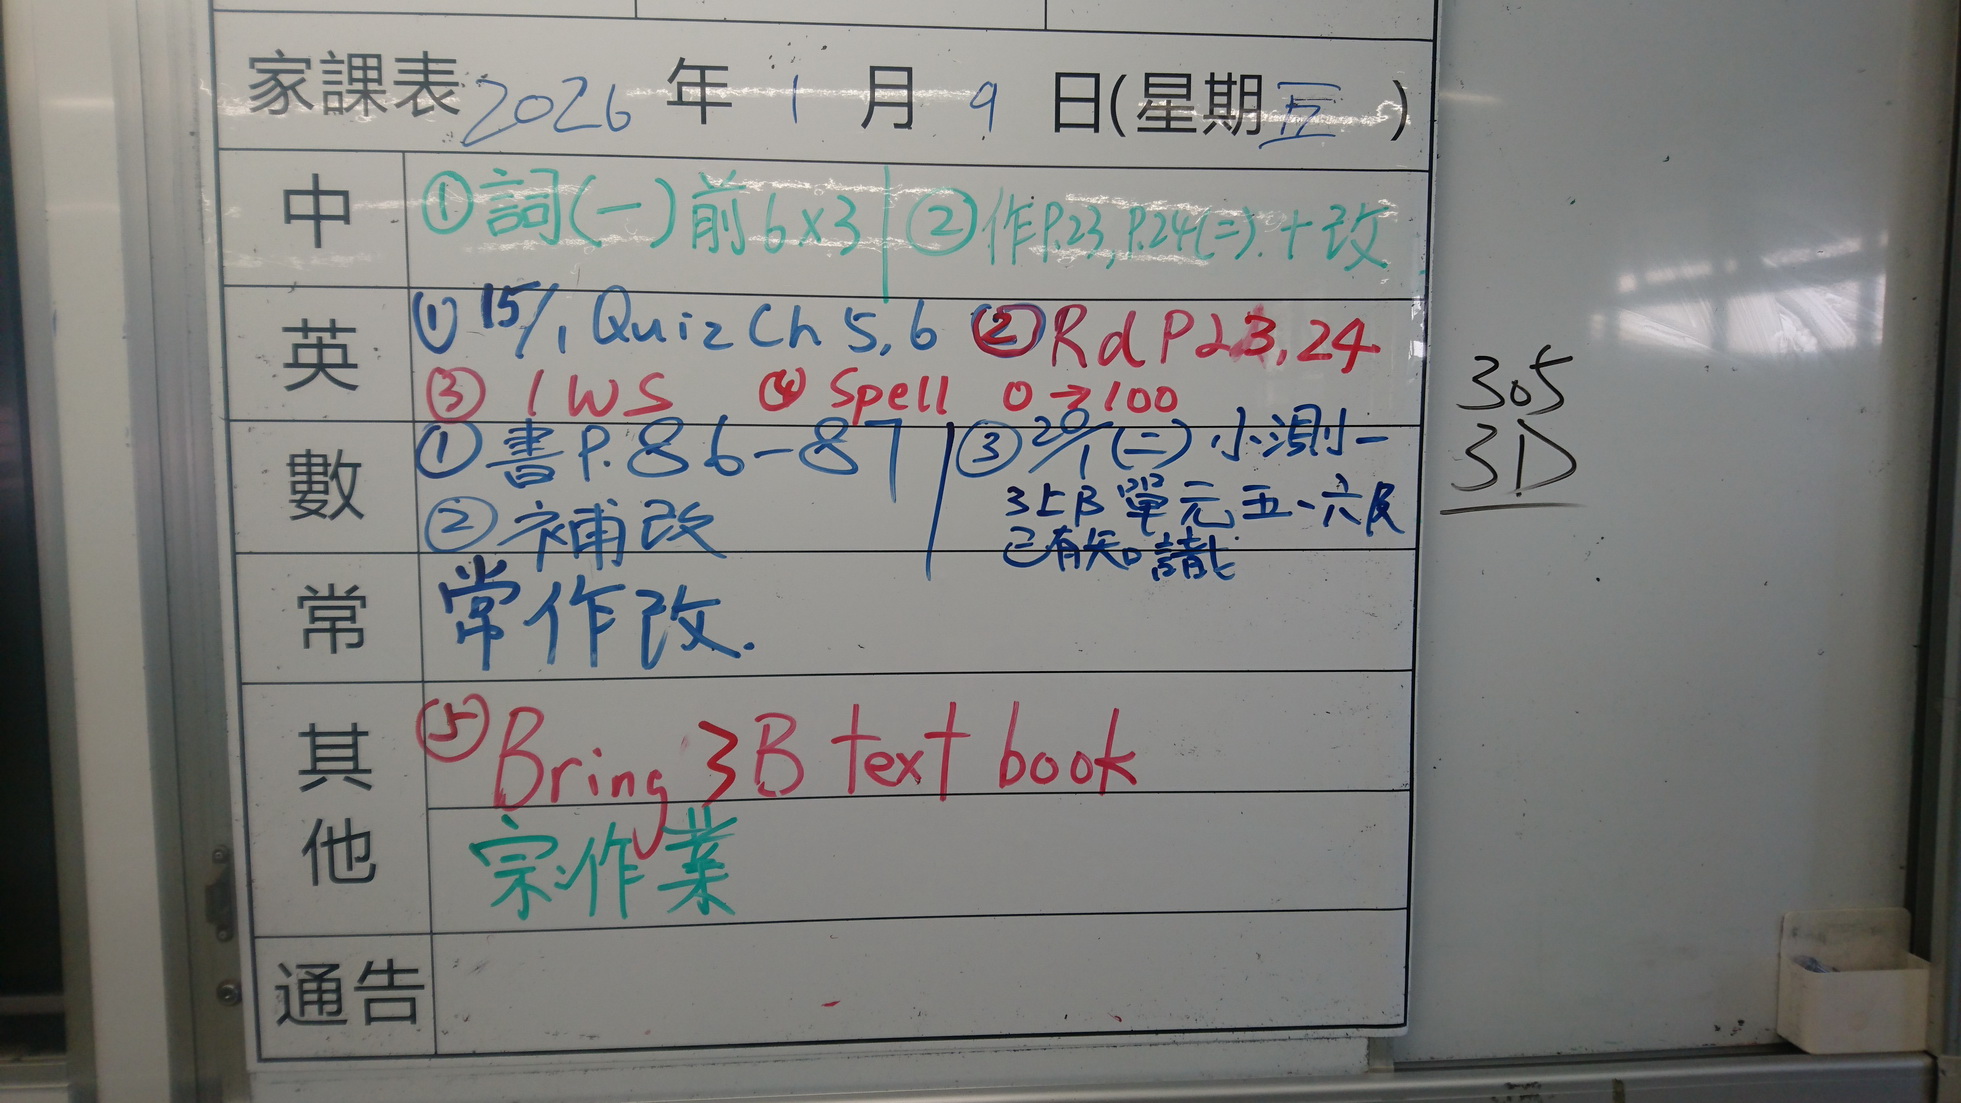 家課表 2026 年 1 月 9 日(星期五)
中 ①詞(一)前6x3 ②作P.23, P.24(二).+改
英 ① 15/1 Quiz Ch 5,6 ② Rd P23,24
③ 1 WS ④ Spell 0→100
數 ①書P.86-87 ③20/1(二)小測一
②補改 3上B單元五、六及
已有知識
常 常作改.
其他 ⑤ Bring 3B text book
宗:作業
通告
305
3D